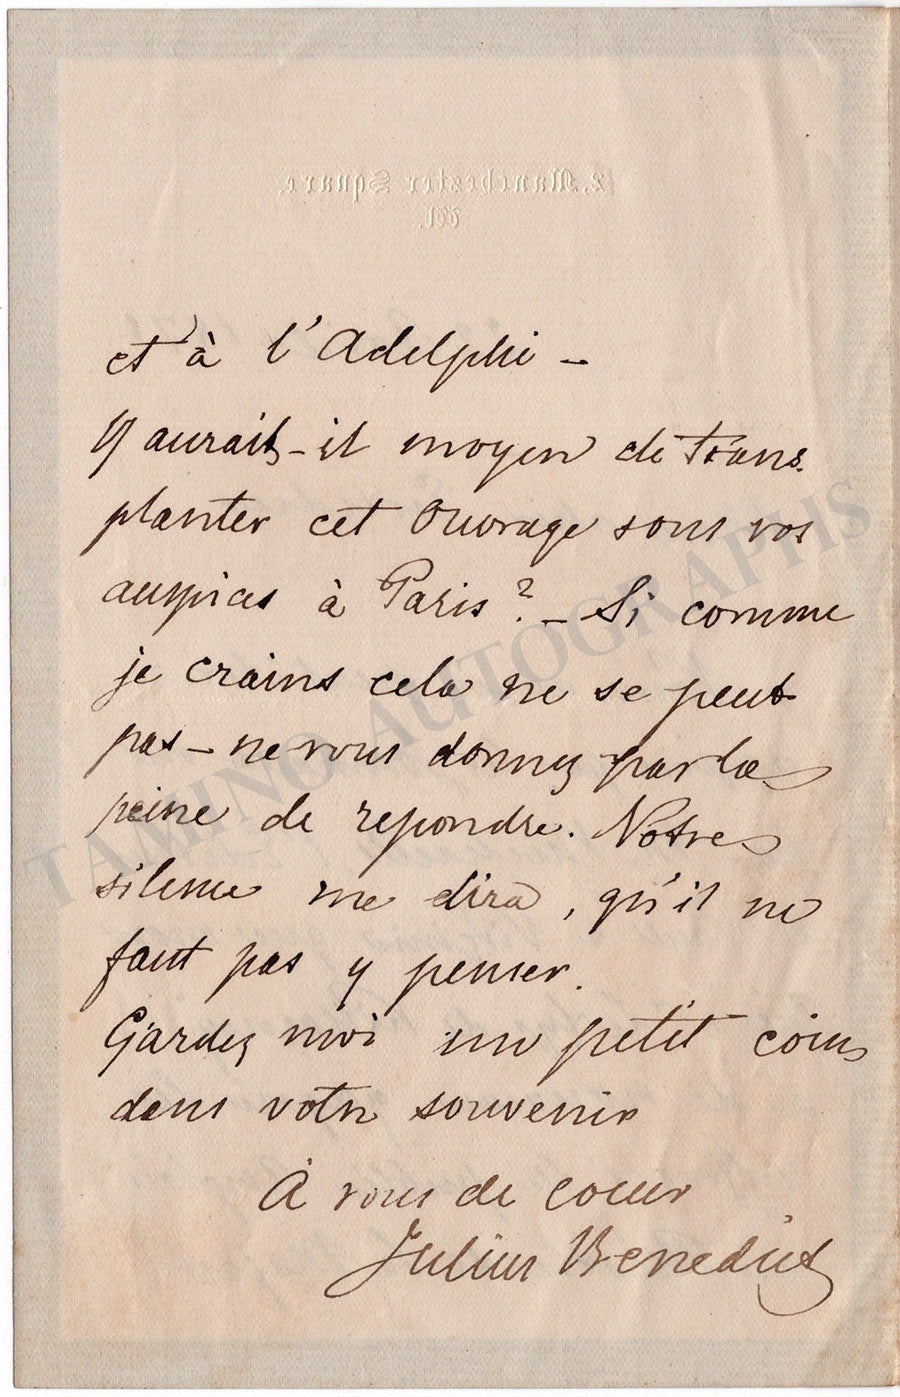 2. Manchester Square.
W.
et à l'Adelphi –
Y aurait-il moyen de trans
planter cet Ouvrage sous vos
auspices à Paris? – Si comme
je crains cela ne se peut
pas – ne vous donnez pas la
peine de repondre. Votre
silence me dira, qu'il ne
faut pas y penser.
Gardez moi un petit coin
dans votre souvenir
À vous de coeur
Julius Benedict
TAMINO AUTOGRAPHS